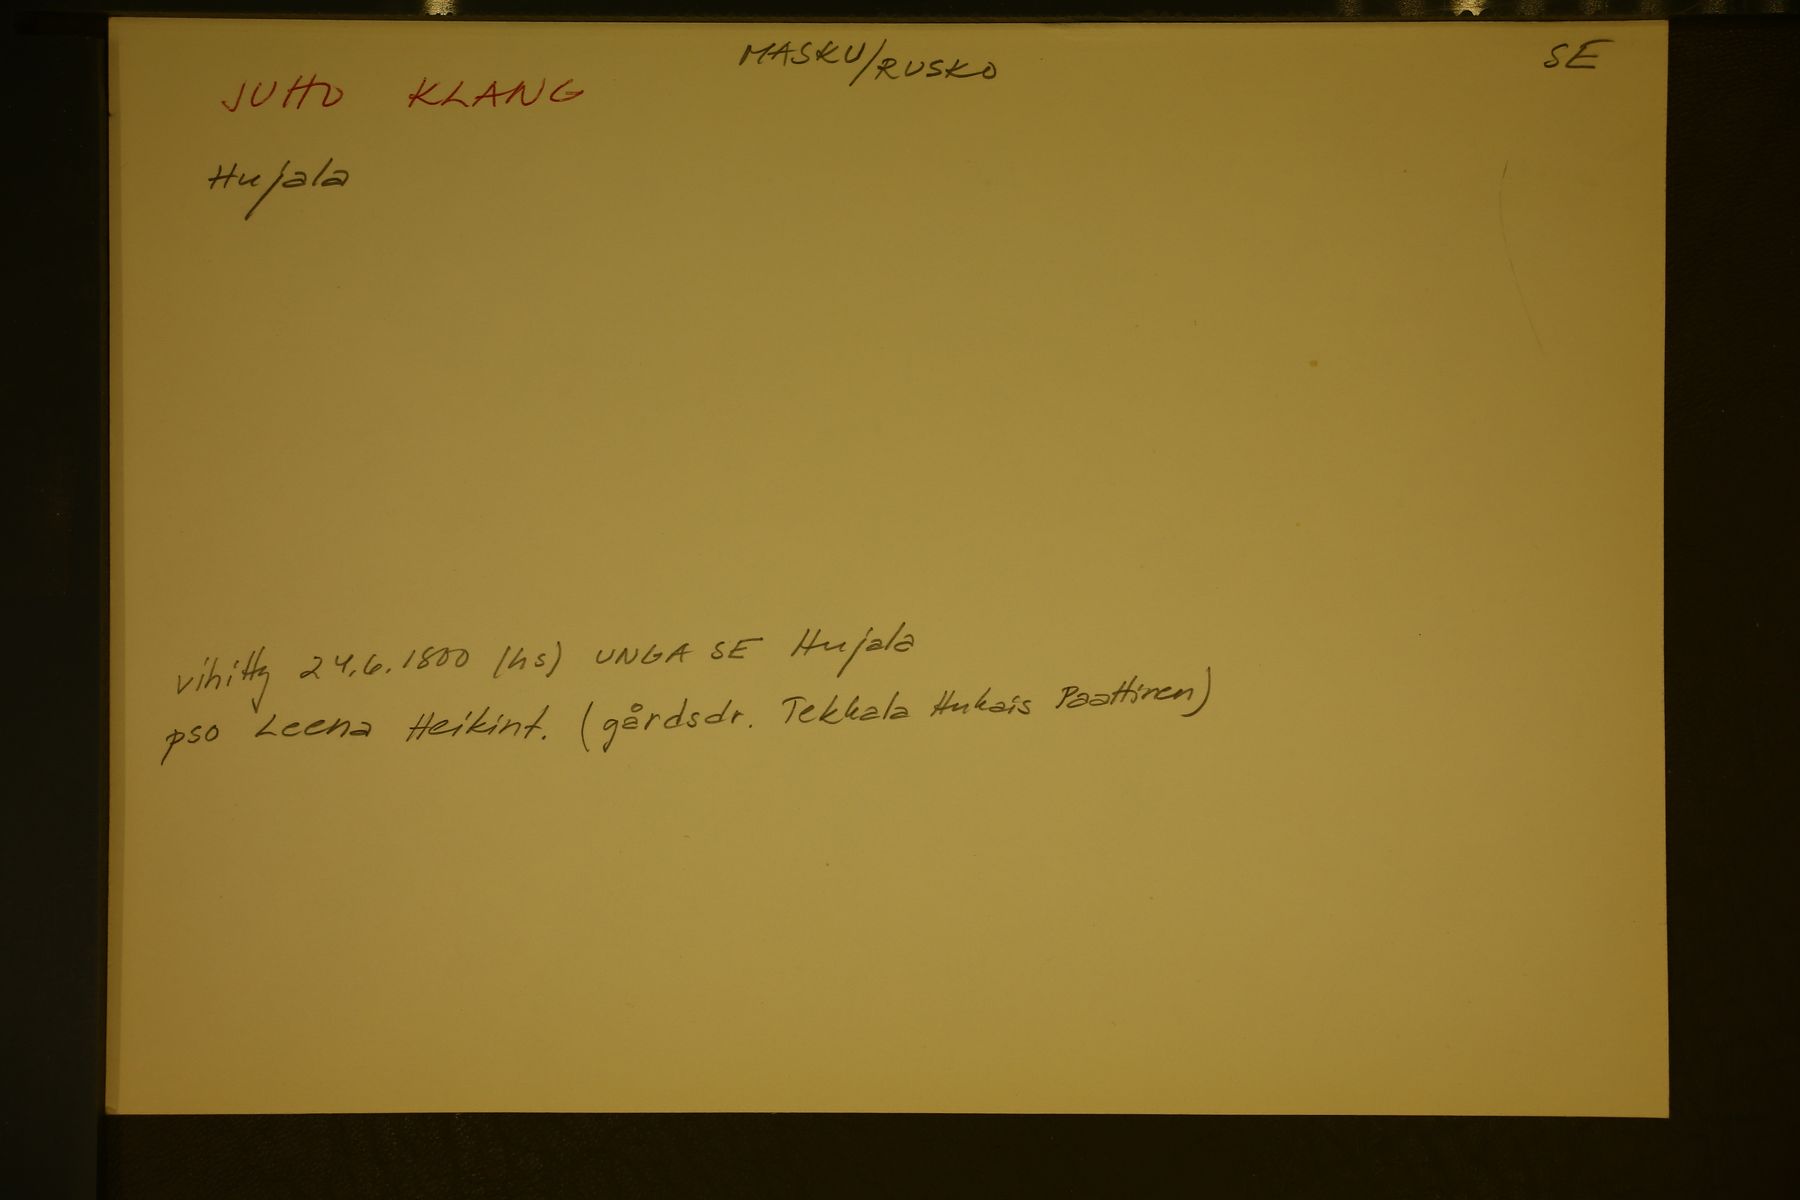 MASKU/RUSKO
SE
JUHO KLANG
Hujala
vihitty 24.6.1800 (hs) UNGA SE Hujala
pso Leena Heikint. (gårdsdr. Tekkala Hukais Paattinen)